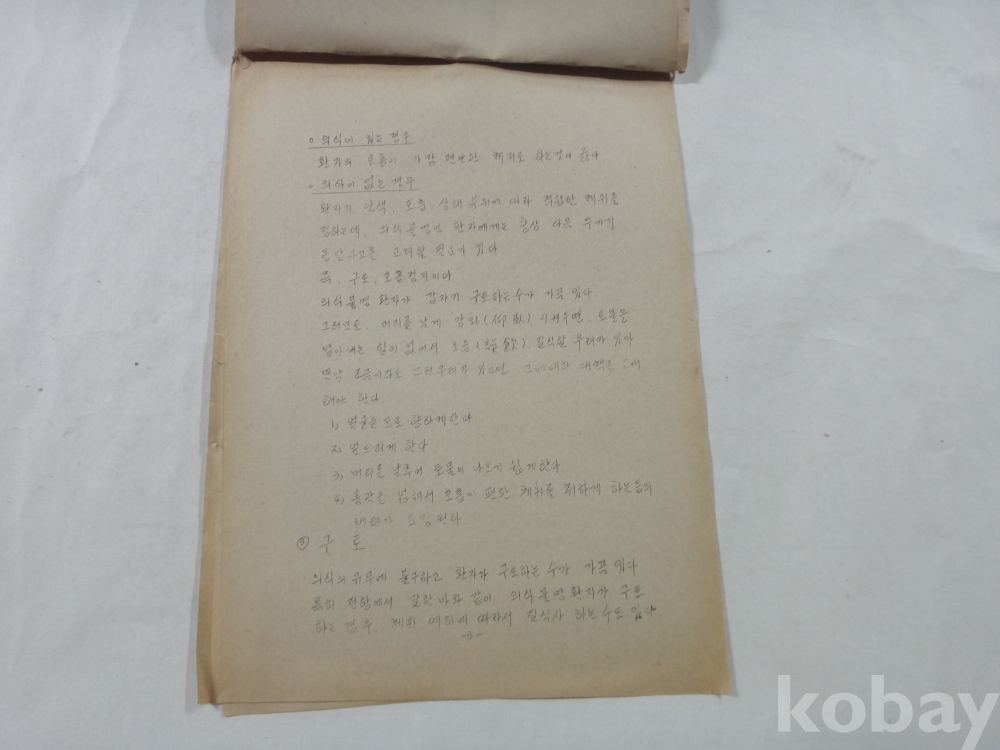 ○ 의식이 있는 경우
환자의 호흡이 가장 편안한 체위로 하는것이 좋다
○ 의식이 없는 경우
환자의 안색, 호흡, 상해 부위에 따라 적합한 체위를
정하는데, 의식불명인 환자에게는 항상 다음 두가지
돌발사고를 고려할 필요가 있다
즉, 구토, 호흡정지이다
의식불명 환자가 갑자기 구토하는수가 가끔 있다.
그러므로, 머리를 낮게 앙와(仰臥) 시켜두면, 토물을
뱉아내는 힘이 없어서 오음(誤飮), 질식할 우려가 있다
만약 조금이라도 그런우려가 있으면 대책을
해야 한다.
1) 얼굴을 으로 향하게한다
2) 엎드리게 한다
3) 머리를 낮추어 토물이 나오기 쉽게한다
4) 흉곽을 넓혀서 호흡이 편한 체위를 취하게 하는등의
배려가 요망된다
구 토
의식의 유무에 불구하고 환자가 구토하는 수가 가끔 있다
특히 전항에서 말한바와 같이 의식불명환자가 구토
하는 경우, 체위 여하에 따라서 질식사 하는수도 있다.
-3-
kobay